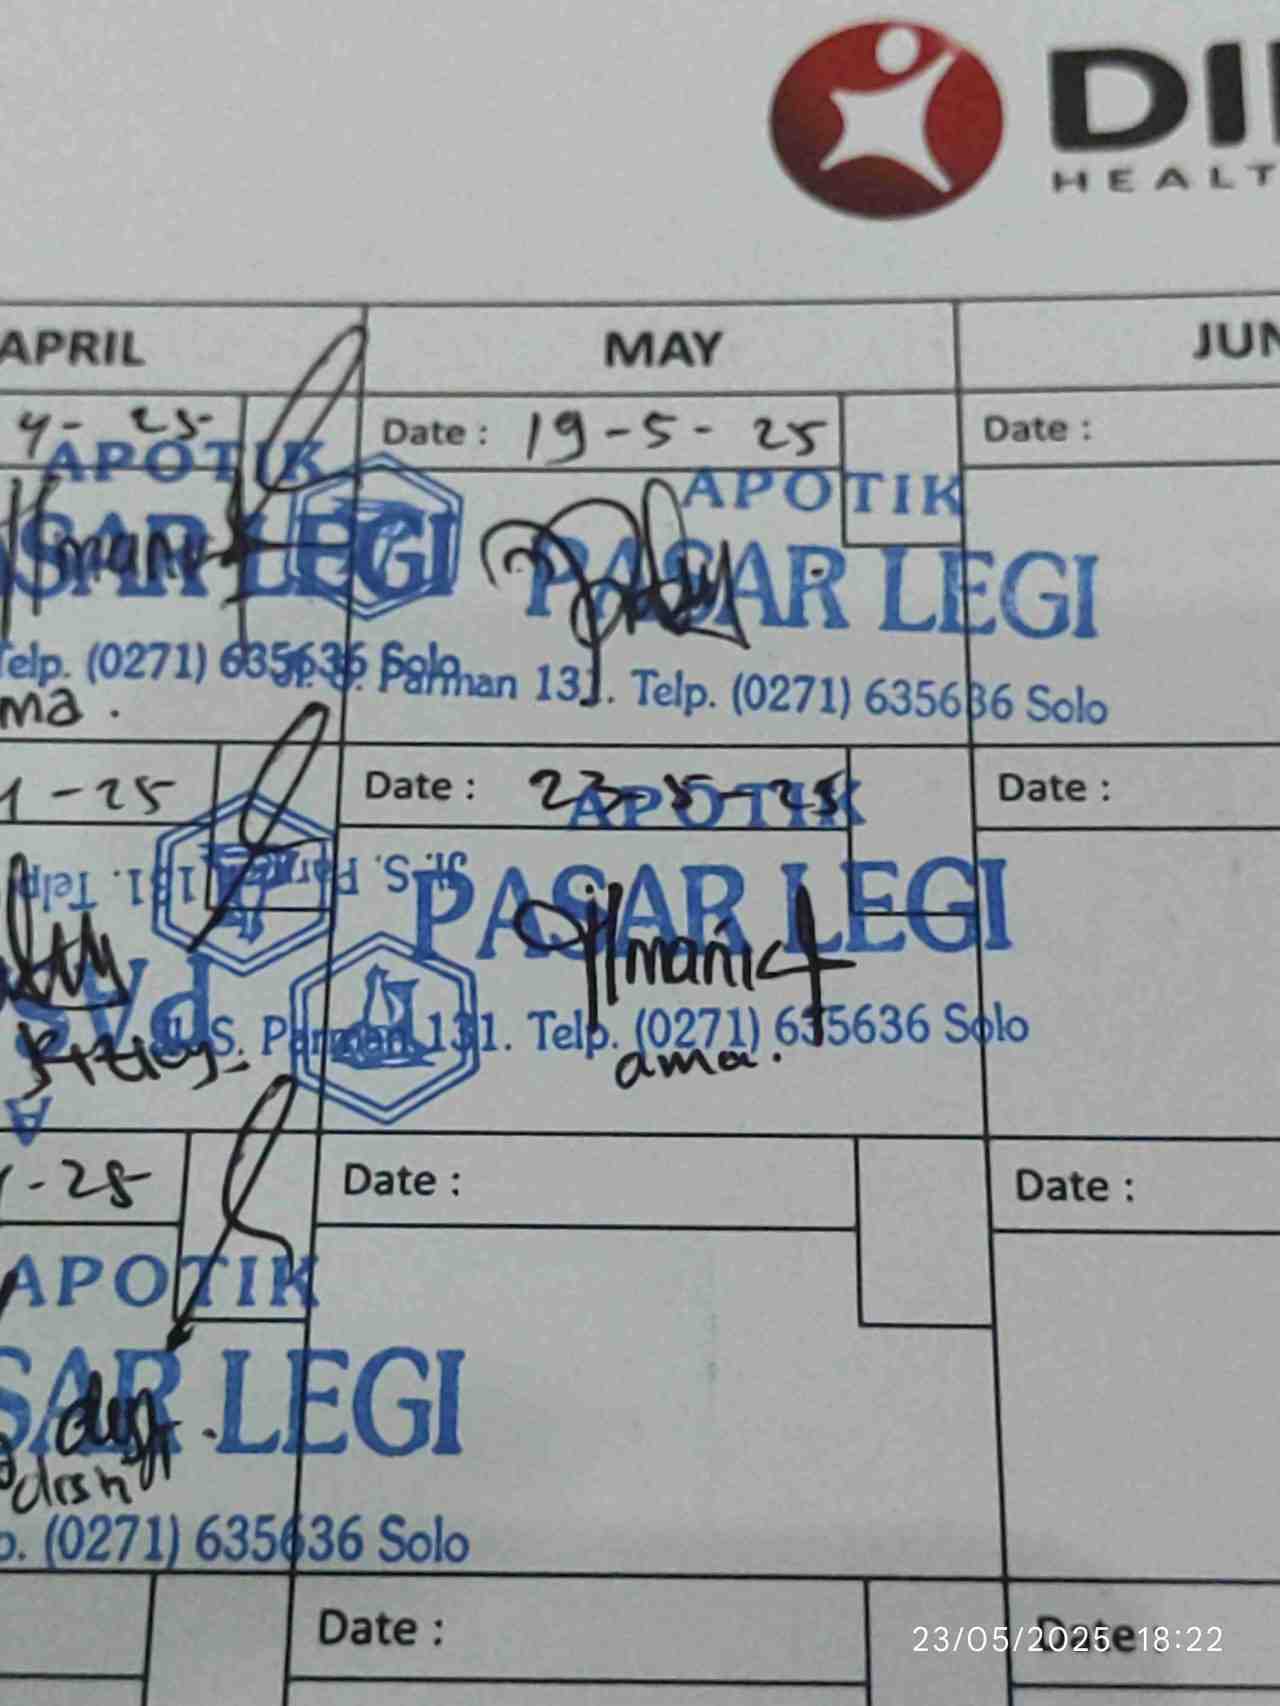 DI
HEALT
APRIL
MAY
JUN
4- 25
Date : 19-5-25
Date :
APOTIK
SAR LEGI
Telp. (0271) 635636 Solo
ma.
APOTIK
PASAR LEGI
Parman 131. Telp. (0271) 635636 Solo
-25
Date : 23-5-25
Date :
Jl. S. Parman 131. Telp
PAS
A
APOTIK
PASAR LEGI
Jl. S. Parman 131. Telp. (0271) 635636 Solo
ama.
-25
Date :
Date :
APOTIK
SAR LEGI
p. (0271) 635636 Solo
Date :
Date
23/05/2025 18:22